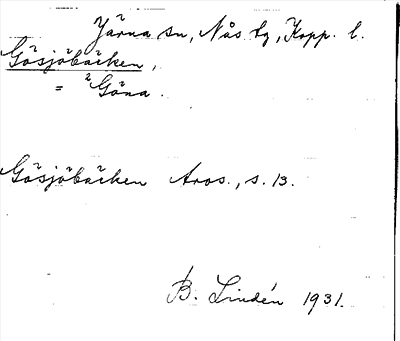 Järna sn, Nås tg, Kopp. l.
Gösjöbäcken,
= ²Göna.
Gösjöbäcken Aros., s. 13.
B. Lindén 1931.